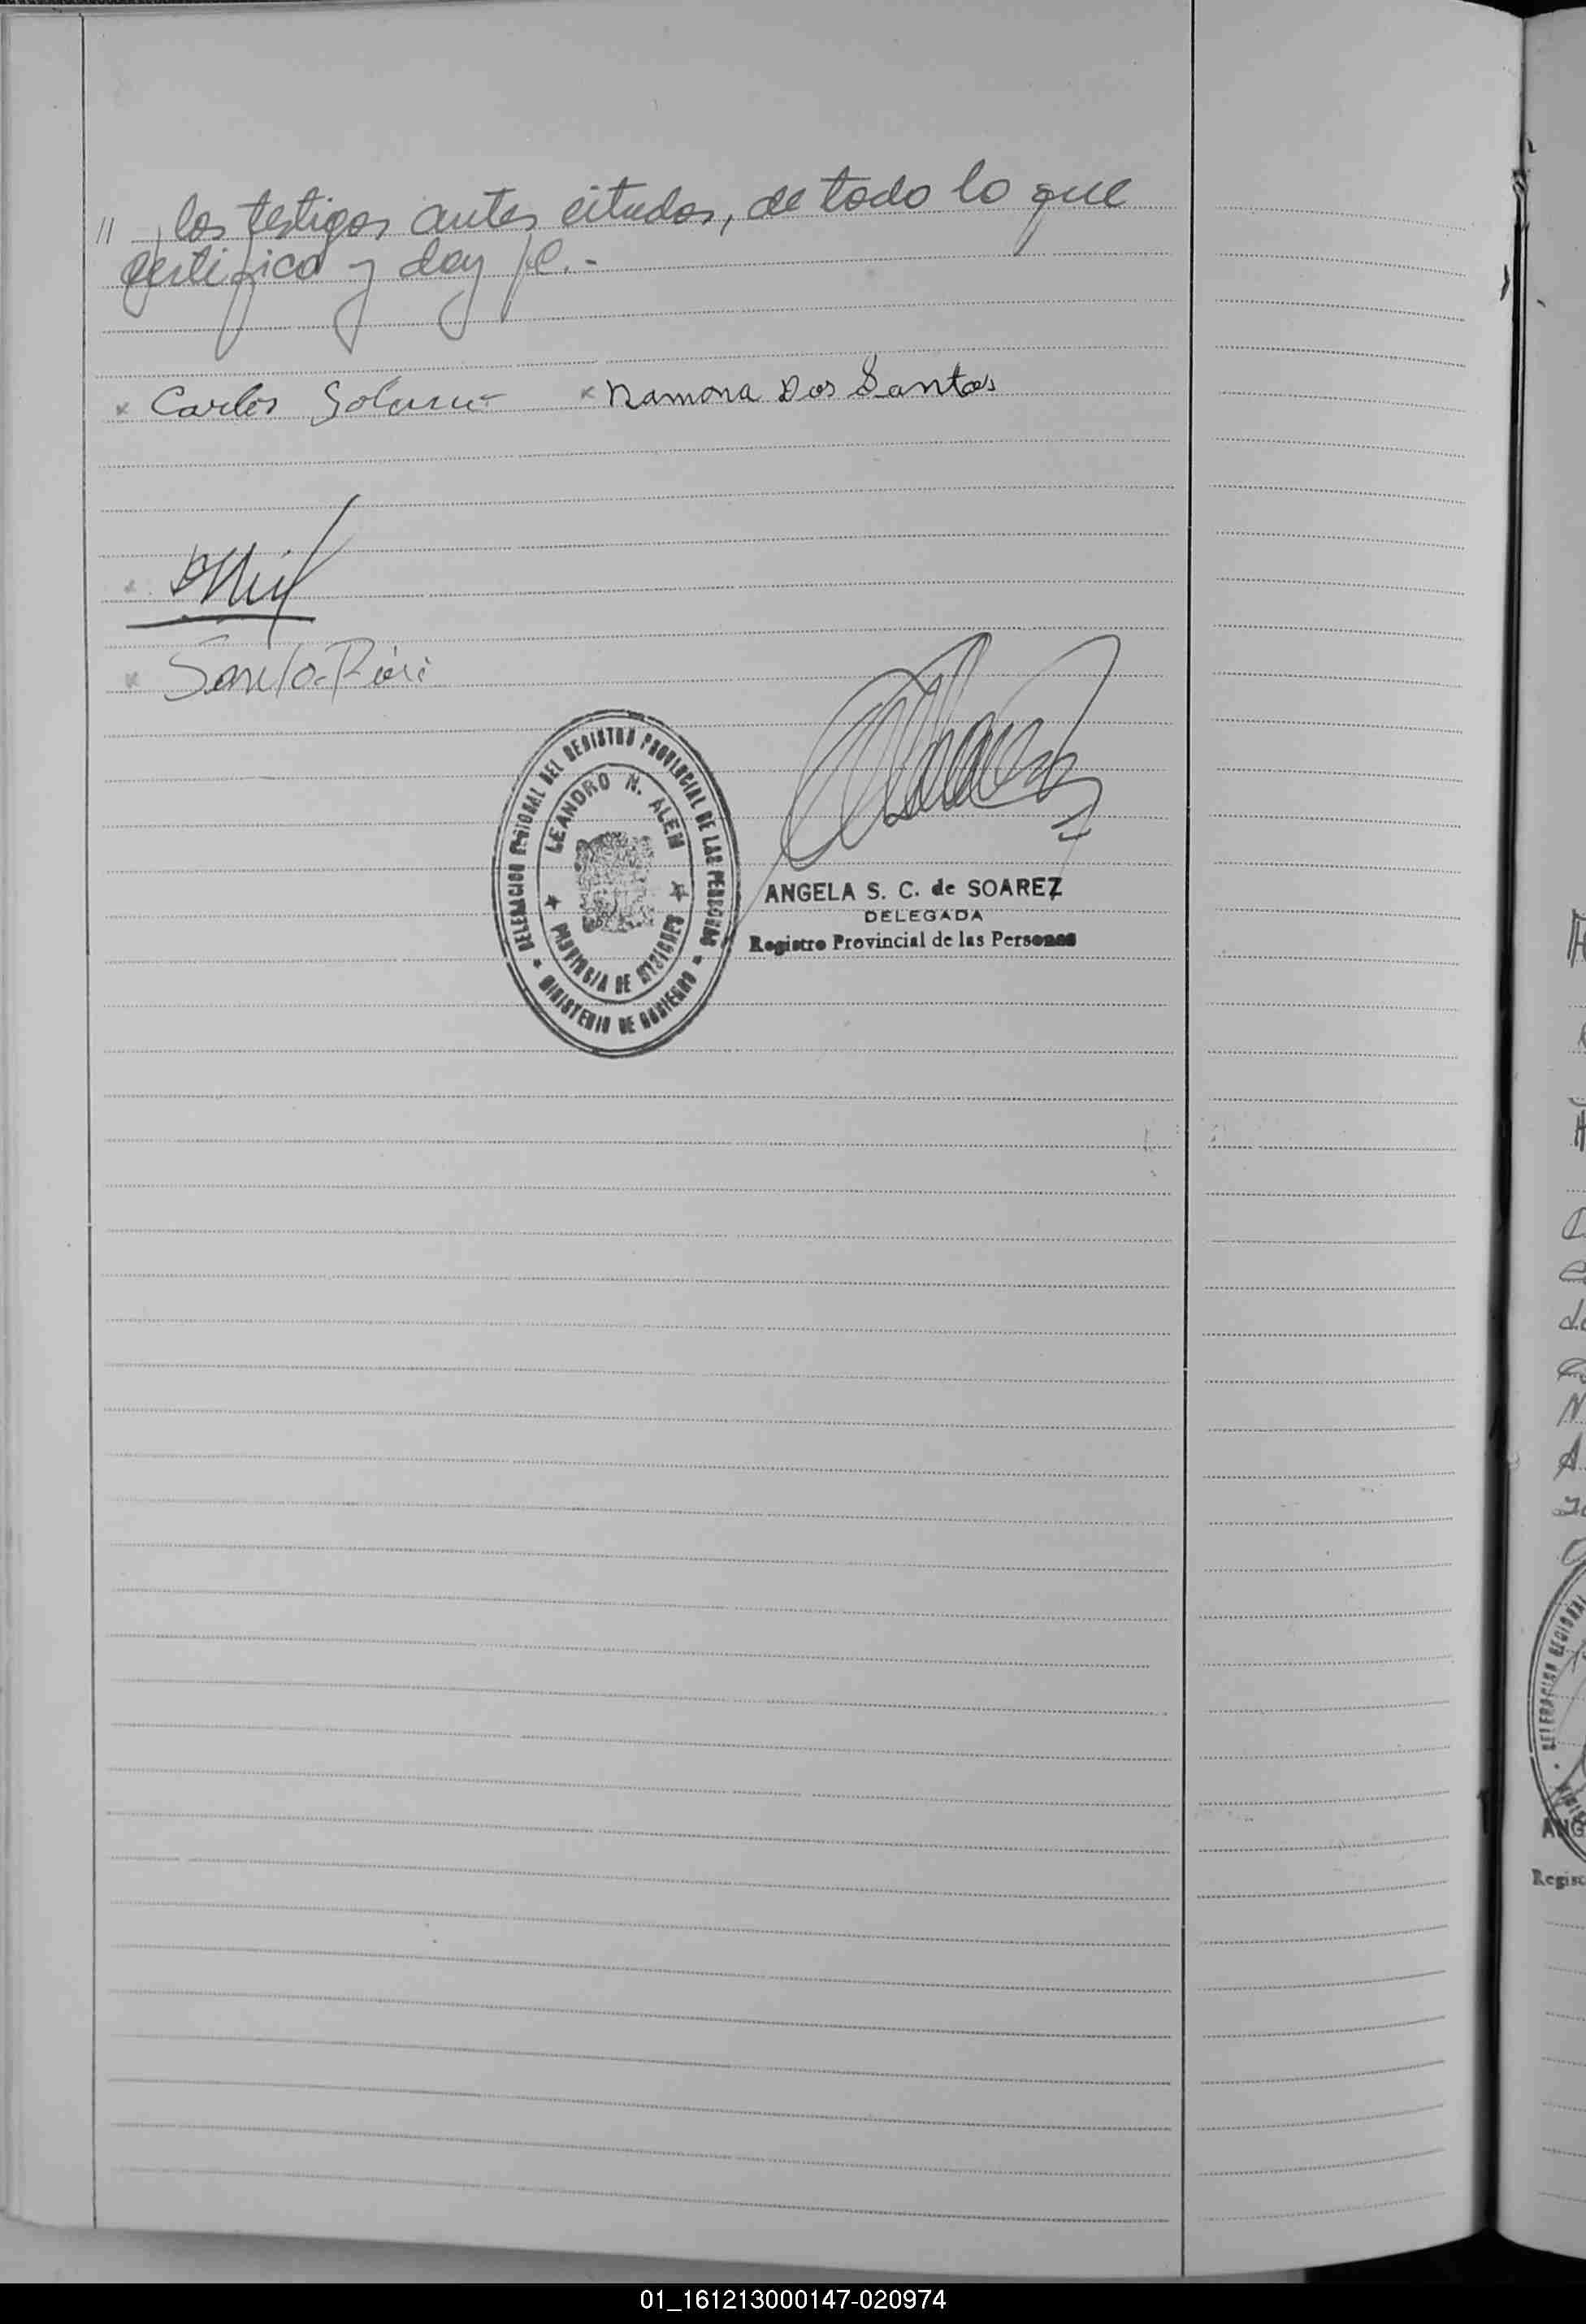 // los testigos antes citados, de todo lo que
certifico y doy fe.-
x Carlos x Ramona Dos Santos
x
x
DELEGACION REGIONAL DEL REGISTRO PROVINCIAL DE LAS PERSONAS
LEANDRO N. ALEM
PROVINCIA DE MISIONES
MINISTERIO DE GOBIERNO
ANGELA S. C. de SOAREZ
DELEGADA
Registro Provincial de las Personas
01_161213000147-020974